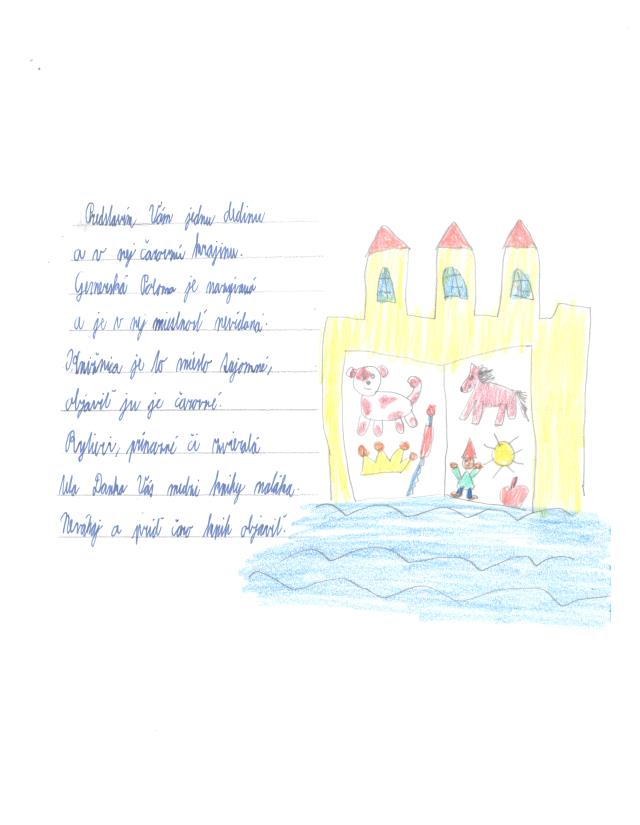 Predstavím Vám jednu dedinu
a v nej čarovnú krajinu.
Gemerská Poloma je nazývaná
a je v nej miestnosť nevídaná.
Knižnica je to miesto tajomné,
objaviť ju je čarovné.
Rytieri, princezné či zvieratá
teta Danka Vás medzi knihy naláka.
Neváhaj a príď čaro kníh objaviť.